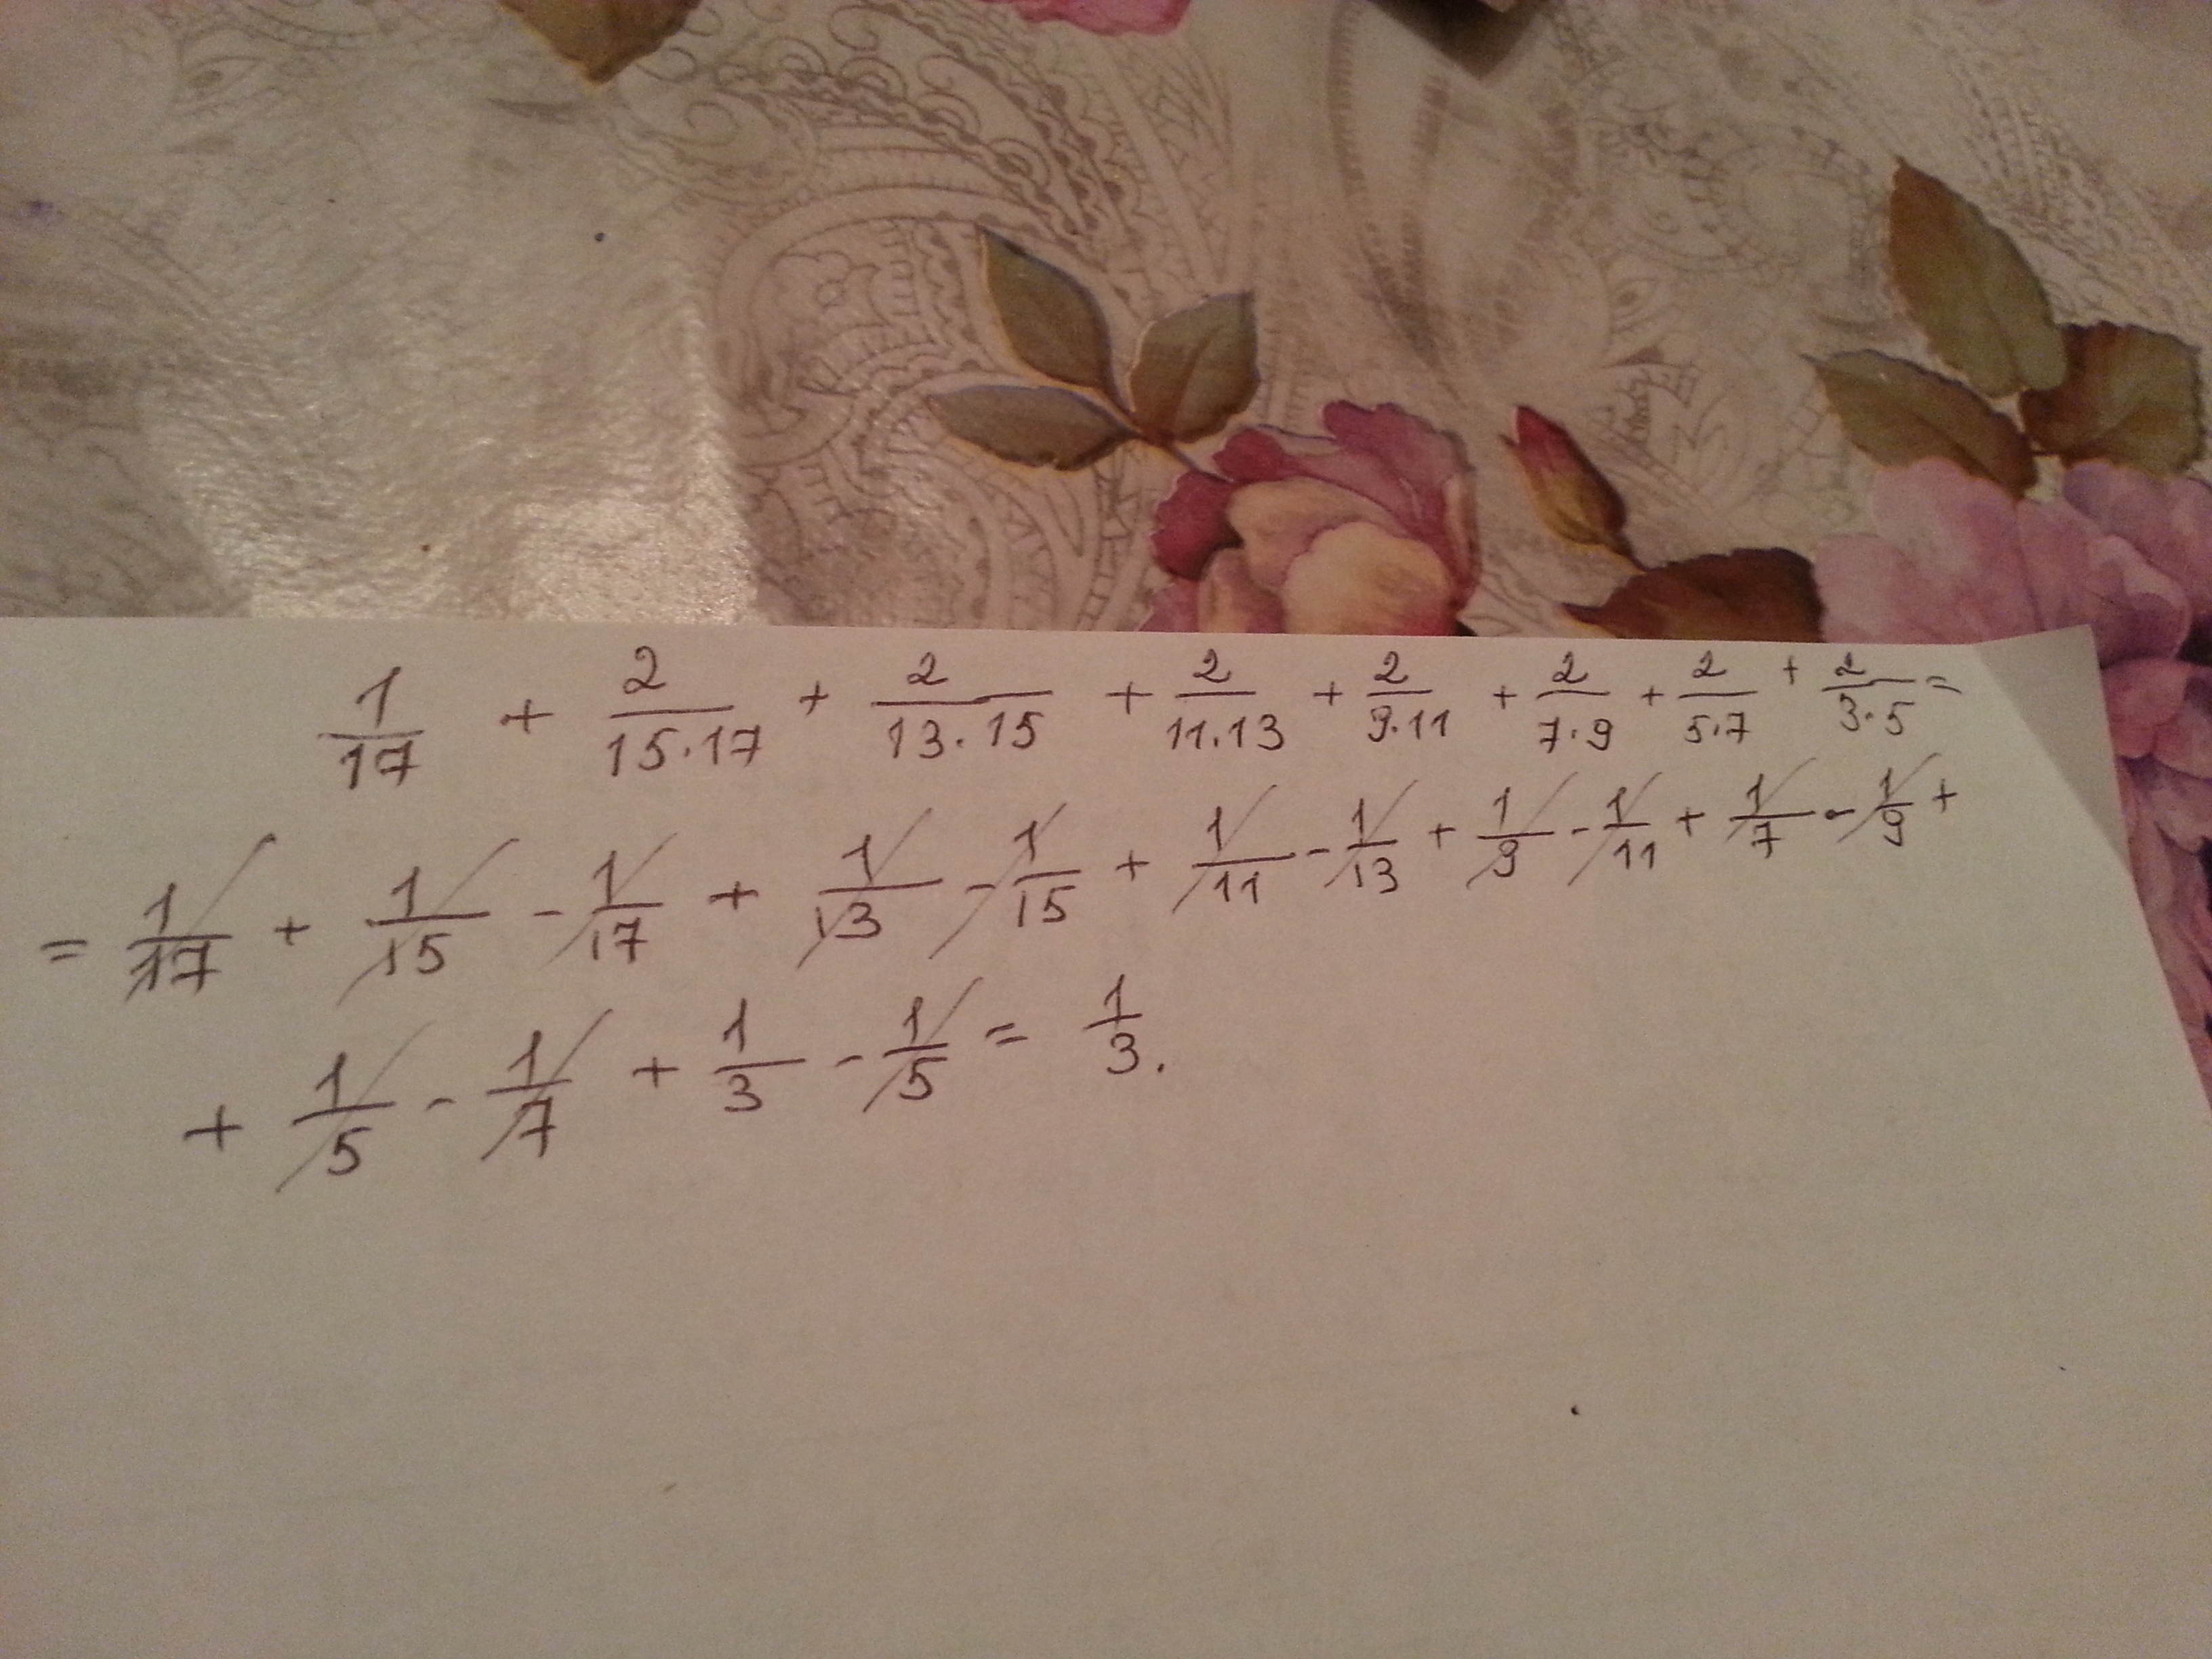 1/17 + 2/15·17 + 2/13·15 + 2/11·13 + 2/9·11 + 2/7·9 + 2/5·7 + 2/3·5 =
= 1/17 + 1/15 - 1/17 + 1/13 - 1/15 + 1/11 - 1/13 + 1/9 - 1/11 + 1/7 - 1/9 +
+ 1/5 - 1/7 + 1/3 - 1/5 = 1/3.